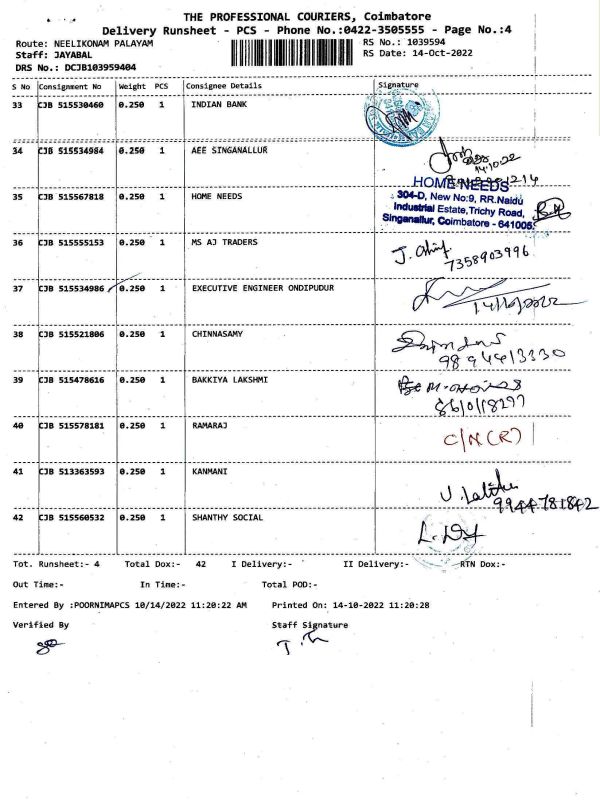 THE PROFESSIONAL COURIERS, Coimbatore
Delivery Runsheet - PCS - Phone No.:0422-3505555 - Page No.:4
Route: NEELIKONAM PALAYAM
RS No.: 1039594
Staff: JAYABAL
RS Date: 14-Oct-2022
DRS No.: DCJB103959404
S No Consignment No Weight PCS Consignee Details Signature
33 CJB 515530460 0.250 1 INDIAN BANK
34 CJB 515534984 0.250 1 AEE SINGANALLUR
14.10.22
35 CJB 515567818 0.250 1 HOME NEEDS
HOME NEEDS
304-D, New No:9, RR.Naidu
Industrial Estate,Trichy Road,
Singanallur, Coimbatore - 641005.
36 CJB 515555153 0.250 1 MS AJ TRADERS
7358903996
37 CJB 515534986 0.250 1 EXECUTIVE ENGINEER ONDIPUDUR
14/10/2022
38 CJB 515521806 0.250 1 CHINNASAMY
9894413330
39 CJB 515478616 0.250 1 BAKKIYA LAKSHMI
40 CJB 515578181 0.250 1 RAMARAJ
C/N(R)
41 CJB 513363593 0.250 1 KANMANI
9944781842
42 CJB 515560532 0.250 1 SHANTHY SOCIAL
Tot. Runsheet:- 4 Total Dox:- 42 I Delivery:- II Delivery:- RTN Dox:-
Out Time:- In Time:- Total POD:-
Entered By :POORNIMAPCS 10/14/2022 11:20:22 AM Printed On: 14-10-2022 11:20:28
Verified By Staff Signature